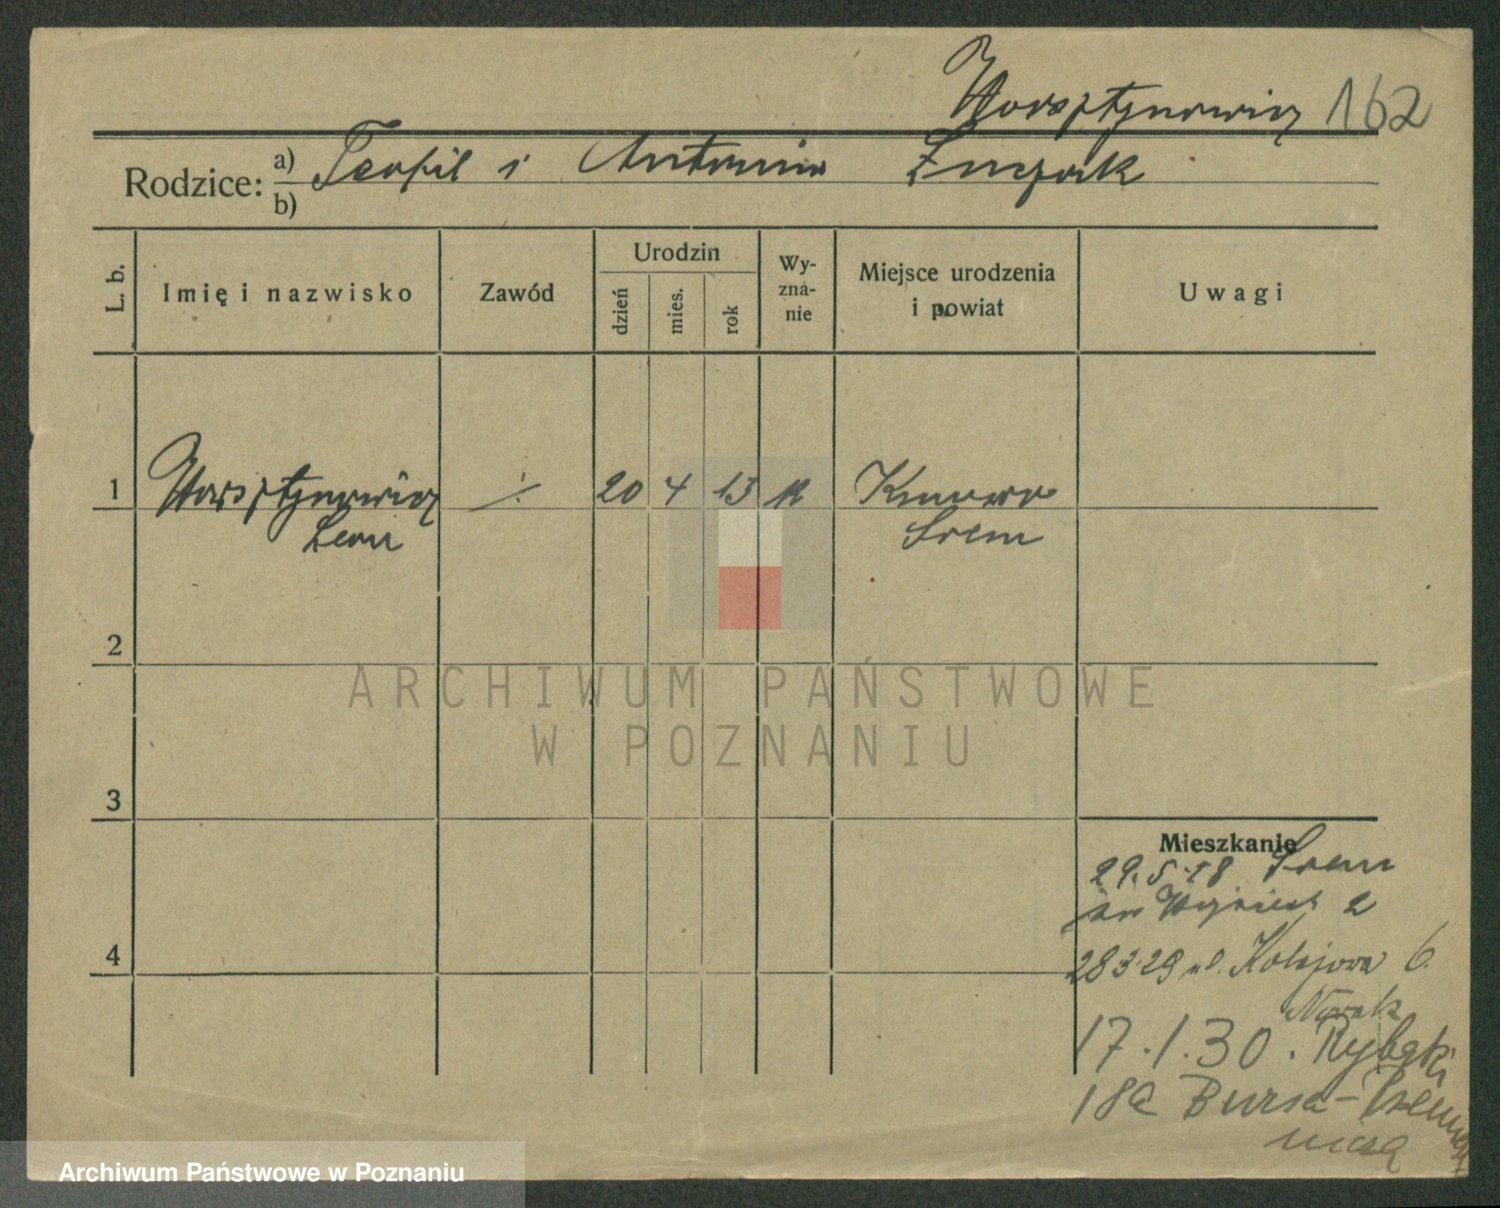 Worsztynowicz 162
Rodzice: a) Teofil i Antonina
b)
L. b.
Imię i nazwisko
Zawód
Urodzin
dzień
mies.
rok
Wy-
zna-
nie
Miejsce urodzenia
i powiat
Uwagi
1 Worsztynowicz ·/. 20 4 13
Leon Śrem
2
3
4
Mieszkanie
Śrem
2
28 3 29 ul. Kolejowa 6.
Nowak
17.1.30. Rybaki
18a Bursa-
ARCHIWUM PAŃSTWOWE
W POZNANIU
Archiwum Państwowe w Poznaniu